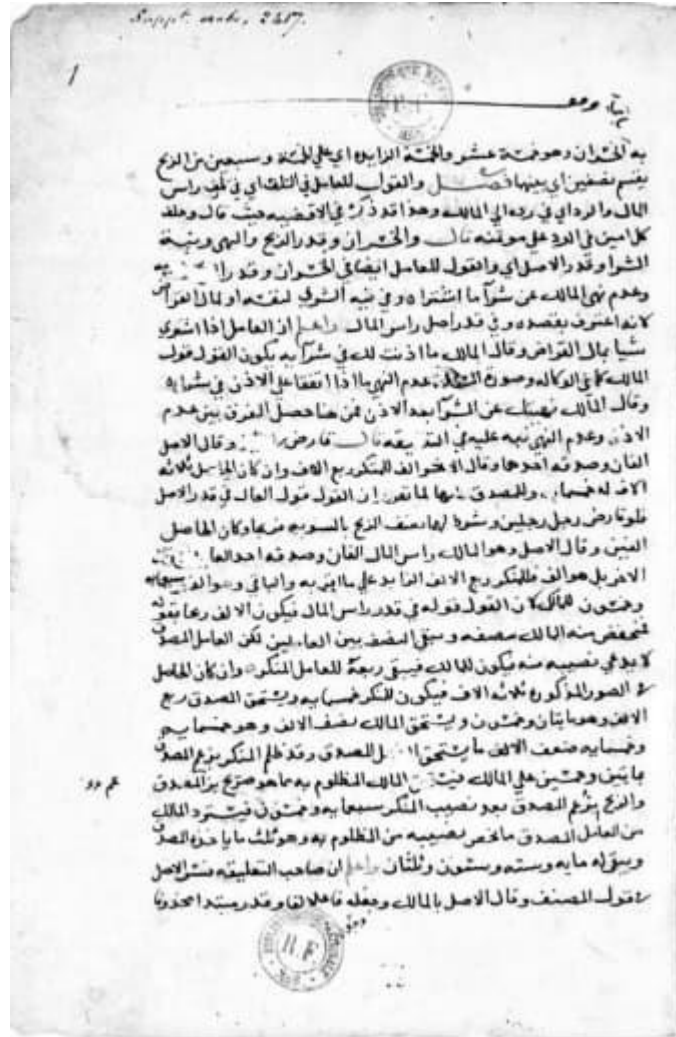 Suppt. arabe, 2457.
1
به الخسران وهو خمسة عشر والخمسة الزايدة اي علي الخمسة وسبعين من الربح
يقسم نصفين اي بينهما فصل والقول للعامل في التلف اي في تلف راس
المال والرد اي في رده الي المالك وهذا قد ذكر في الاقضيه حيث قال وحلف
كل امين في الرد علي موتمنه قال والخسران وقدر الربح والنهي ونية
الشرا وقدر الاصل اي والقول للعامل ايضا في الخسران وقدر
وعدم نهي المالك عن شرآ ما اشتراه وفي نيه الشري لنفسه او لمال القراض
لانه اعترف بقصده وفي قدر اصل راس المال واعلم ان العامل اذا اشتري
شيا بمال القراض وقال المالك ما اذنت لك في شرآيه يكون القول قول
المالك كما في الوكاله وصورة عدم النهي ما اذا اتفقا علي الاذن في شرايه
وقال المالك نهيتك عن الشرآ بعد الاذن فمن هنا حصل الفرق بين عدم
الاذن وعدم النهي نبه عليه في التعليقه قال قارض وقال الاصل
الفان وصدقه احدهما وقال الاخر الف للمنكر ربع الالف وان كان الحاصل ثلاثه
الاف له خمسمايه وللمصدق لما تقرر ان القول قول العامل في قدر الاصل
فلو قارض رجل رجلين وشرط لهما نصف الربح بالسويه فربحا وكان الحاصل
الفين وقال الاصل وهو المالك راس المال الفان وصدقه احد
الاخر بل هو الف فللمنكر ربع الالف الزايد علي ما اقر به والباقي وهو الف وسبعمايه
وخمسون للمالك لان القول قوله في قدر راس المال فيكون الالف ربحا بقوله
نصفه ويبقي النصف بين العاملين لكن العامل المصدق
لا يدعي نصيبه منه فيكون للمالك فيبقي ربعه للعامل المنكر وان كان الحاصل
في الصور المذكوره ثلاثه الاف فيكون للمنكر خمسمايه ويستحق المصدق ربع
الالف وهو مايتان وخمسون ويستحق المالك نصف الالف وهو خمسمايه
وخمسمايه ضعف الالف ما يستحق للمصدق وقد ظلم المنكر بزعم المصدق
بمايتين وخمسين علي المالك المالك المظلوم به مما هو صريح بزعم المصدق
والربح بزعم المصدق بعد نصيب المنكر سبعمايه وخمسون فيسترد المالك
من العامل المصدق ما يخص نصيبه من المظلوم به وهو ثلث ما ياخذه المصدق
ويبقي له مايه وسته وستون وثلثان واعلم ان صاحب التعليقه فسر الاصل
في قول المصنف وقال الاصل بالمالك وجعله فاعلا لقا وقدر مبتدا محذوفا